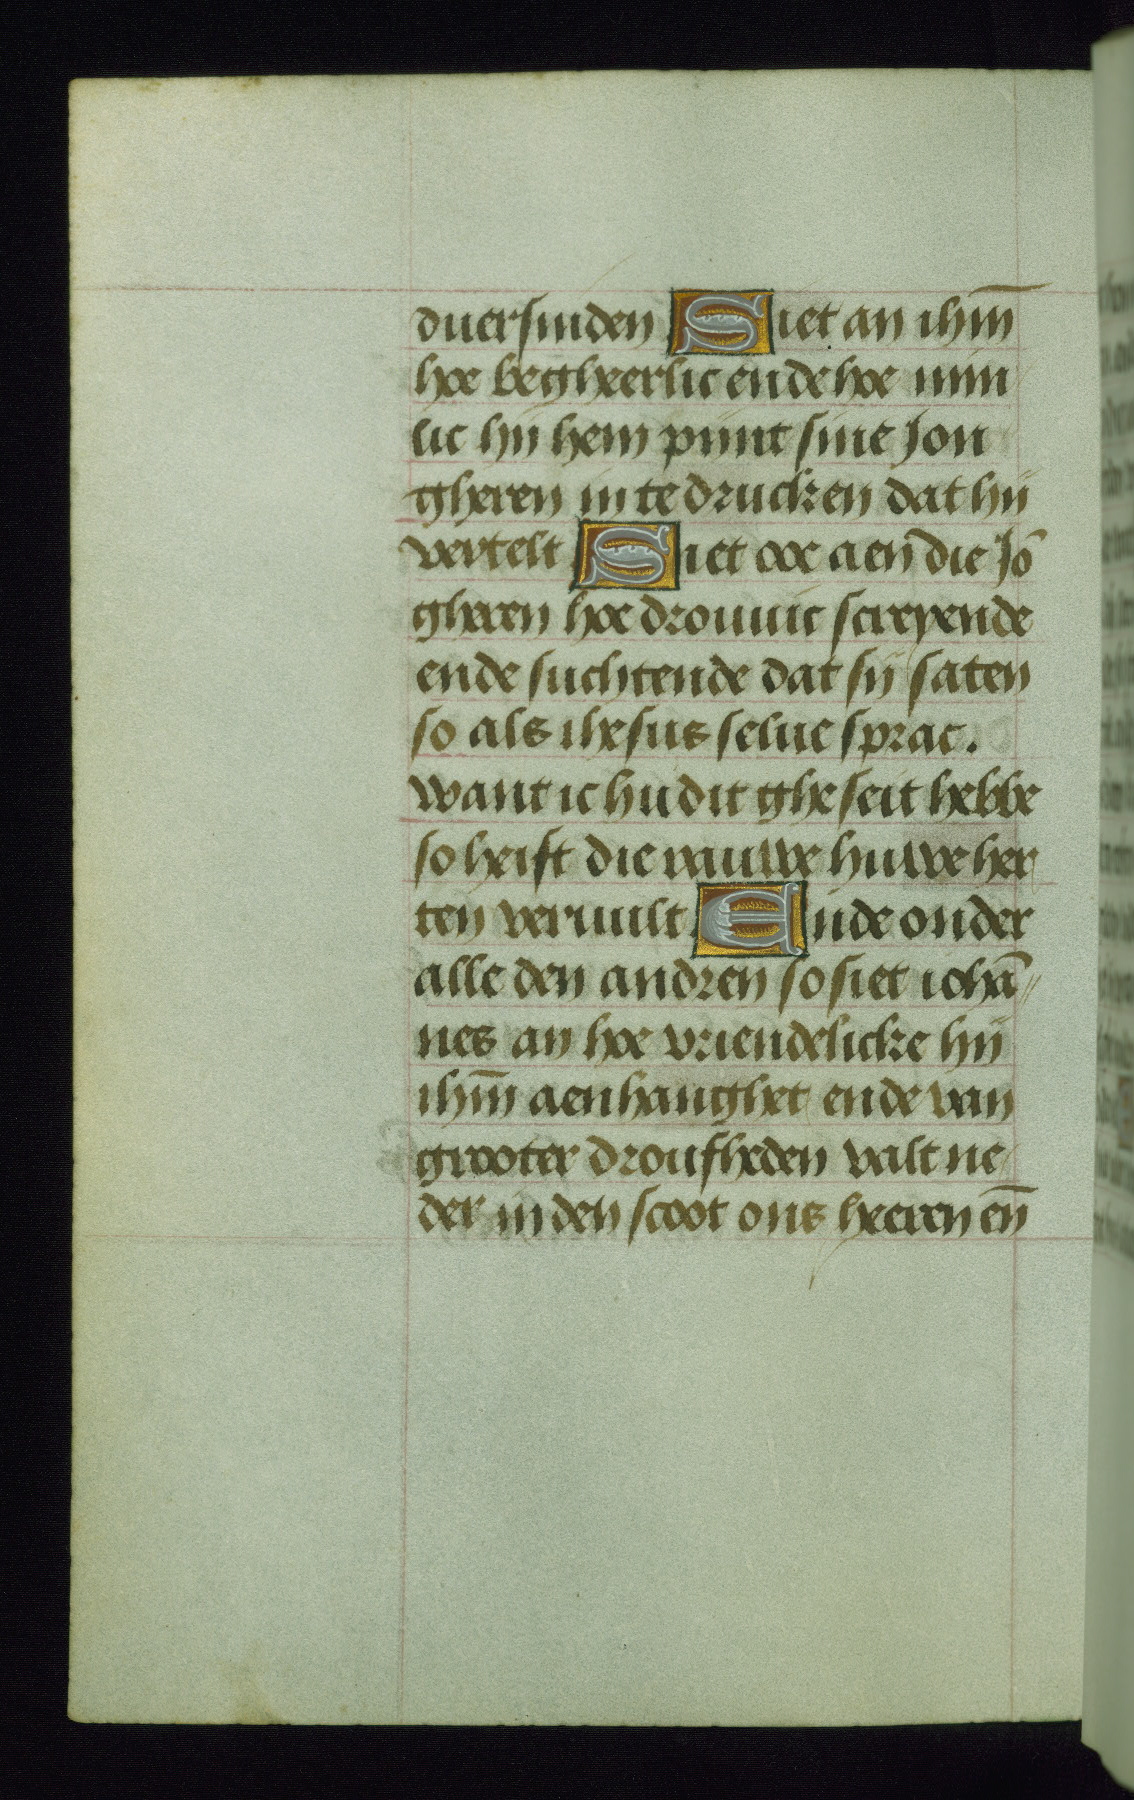 duersinden Siet an ihm̄
hoe begheerlic ende hoe min
lic hij hem pijnt sine Jon
gheren in te drucken dat hij
vertelt Siet ooc aen die Jō
gheren hoe drouuic screyende
ende suchtende dat sij saten
so als ihesus selue sprac.
want ic hu dit gheseit hebbe
so heift die rauwe huwe her
ten veruult Ende onder
alle den andren so siet iohā
nes an hoe vriendelicke hij
ihm̄ aenhanghet ende van
grooter droufheden valt ne
der in den scoot ons heeren en̄